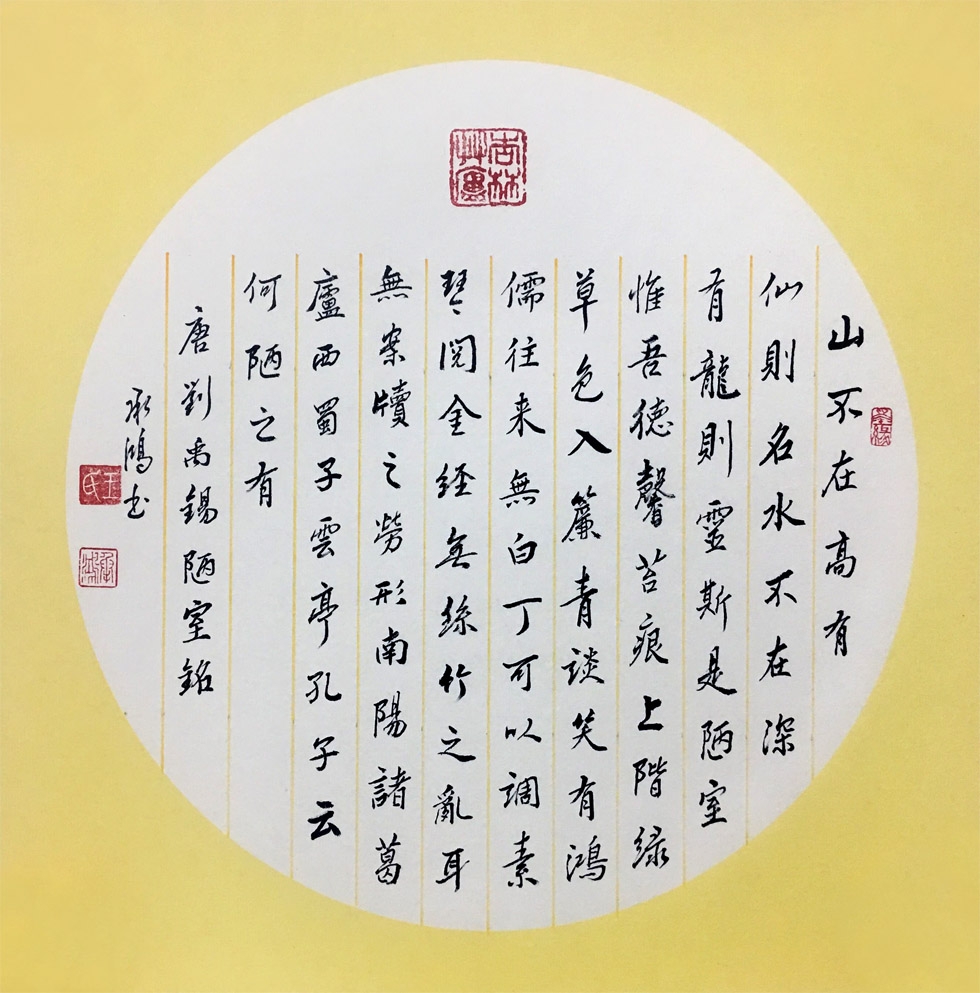 山不在高有
仙則名水不在深
有龍則靈斯是陋室
惟吾德馨苔痕上階緑
草色入簾青談笑有鴻
儒往来無白丁可以調素
琴閱金経無絲竹之亂耳
無案牘之勞形南陽諸葛
廬西蜀子雲亭孔子云
何陋之有
唐劉禹錫陋室銘
承鴻书
王氏
承鴻